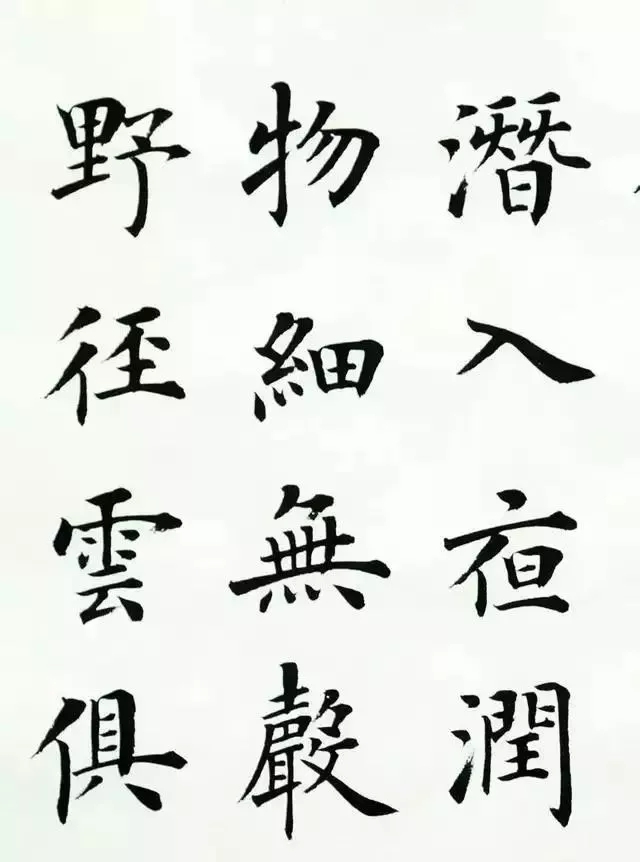 潛入夜潤
物細無聲
野徑雲俱